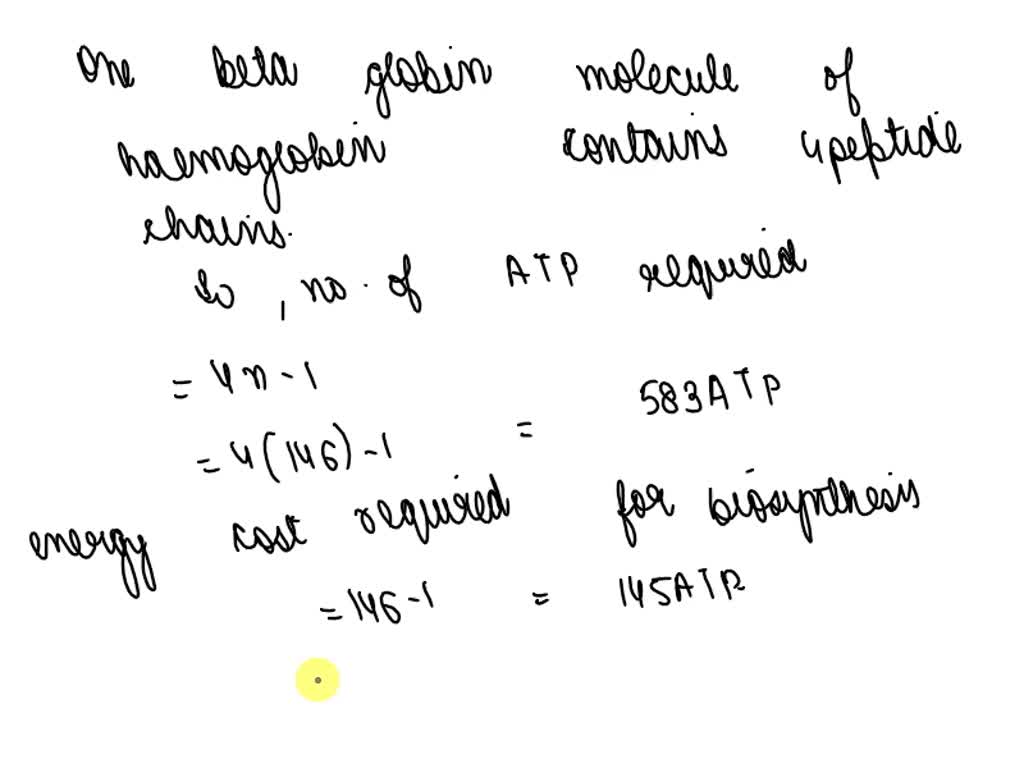 One beta globin molecule of
haemoglobin contains 4 peptide
chains.
So, no. of ATP required
= 4n - 1
= 4(146) - 1 = 583 ATP
energy cost required for biosynthesis
= 146 - 1 = 145 ATP